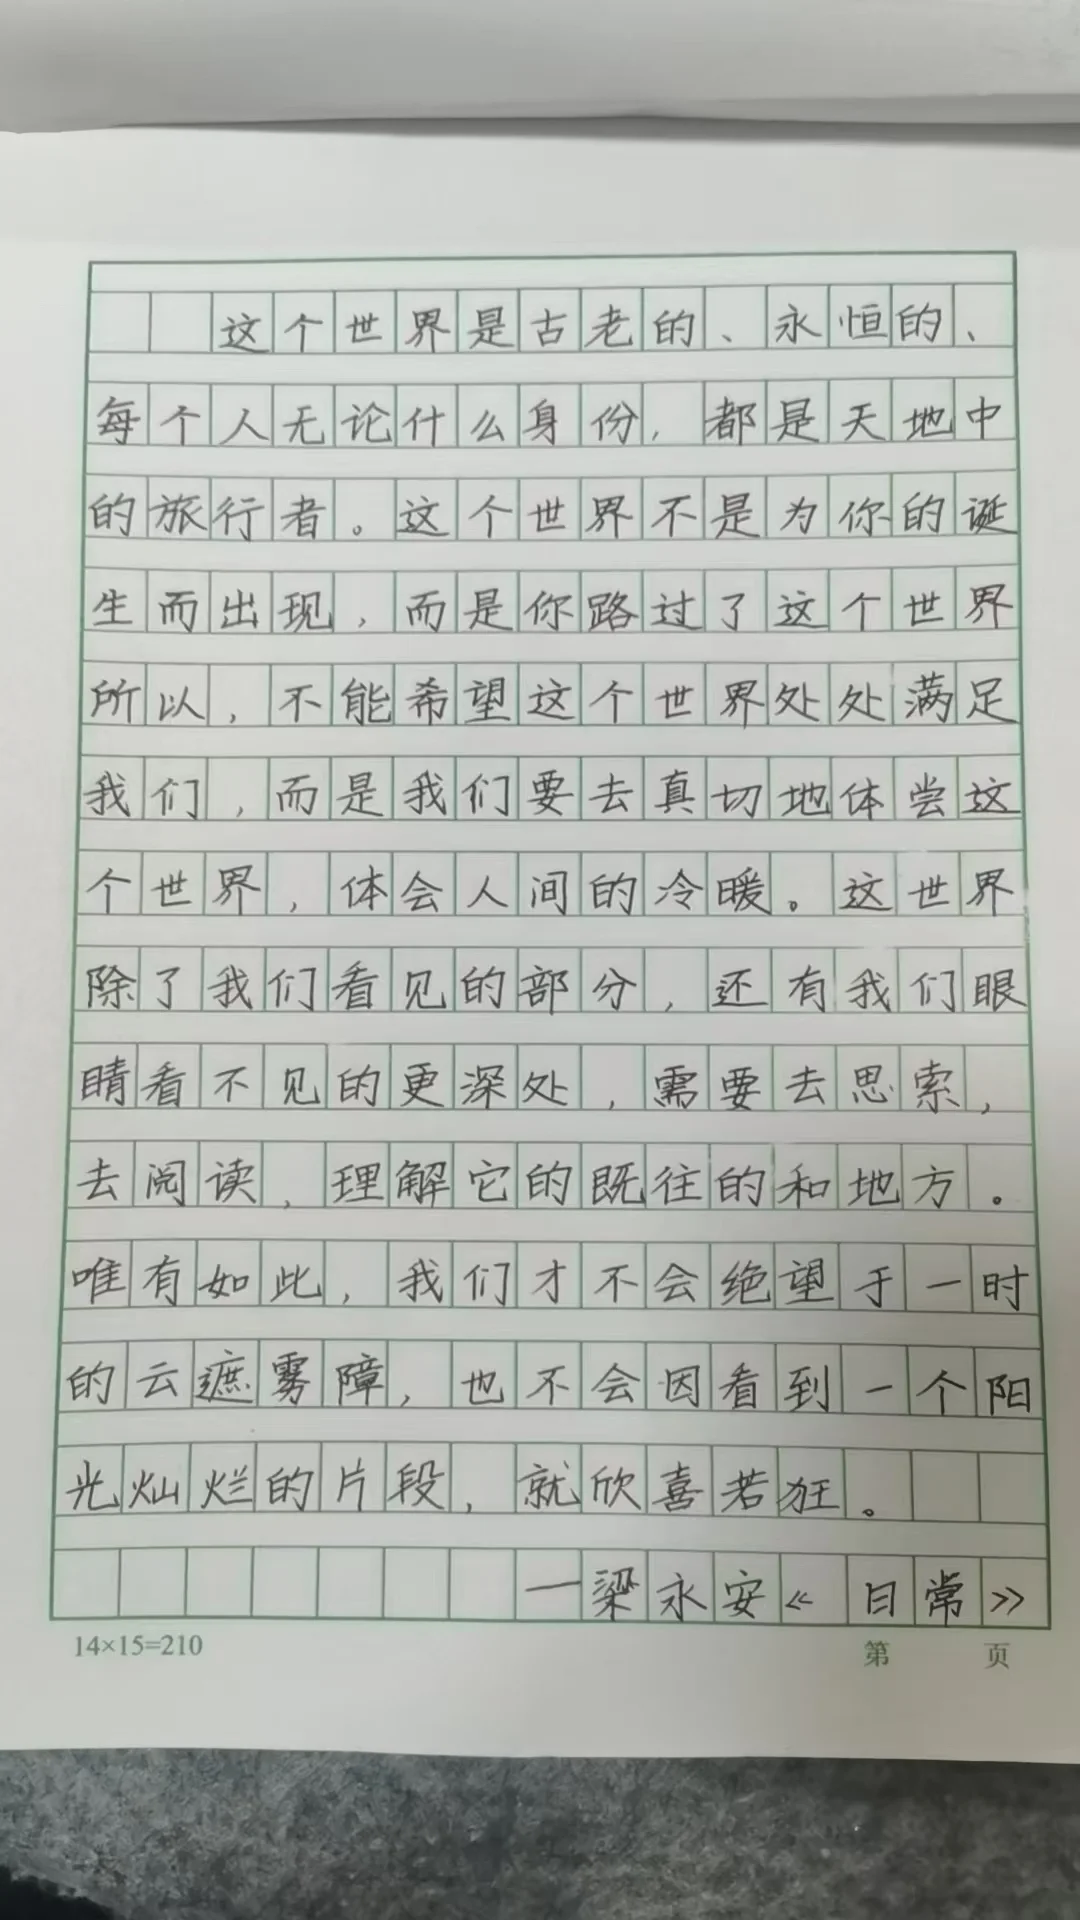 这个世界是古老的、永恒的、
每个人无论什么身份，都是天地中
的旅行者。这个世界不是为你的诞
生而出现，而是你路过了这个世界
所以，不能希望这个世界处处满足
我们，而是我们要去真切地体尝这
个世界，体会人间的冷暖。这世界
除了我们看见的部分，还有我们眼
睛看不见的更深处，需要去思索，
去阅读，理解它的既往的和地方。
唯有如此，我们才不会绝望于一时
的云遮雾障，也不会因看到一个阳
光灿烂的片段，就欣喜若狂。
—梁永安《日常》
14×15=210 第 页